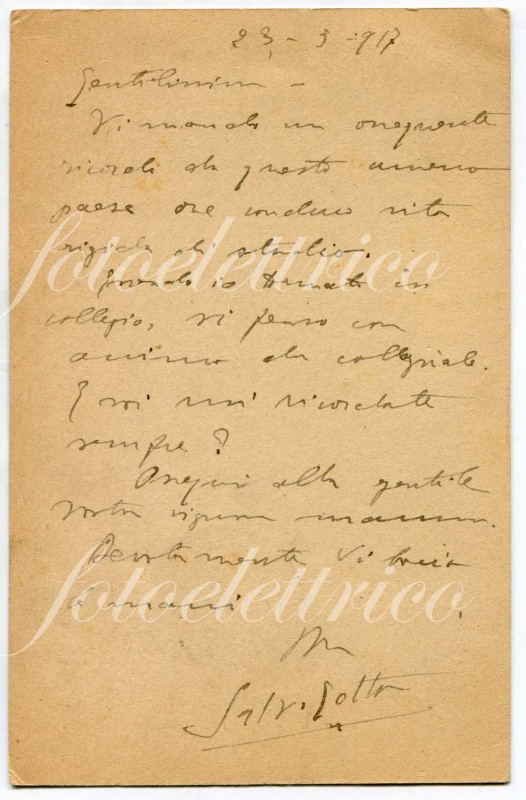 23 - 3 - 917
Gentilissima -
Vi mando un ossequente
ricordo da questo ameno
paese ove conduco vita
rigida di studio.
fotoelettrico
Essendo io tornato in
collegio, vi penso con
animo da collegiale.
E voi mi ricordate
sempre?
Ossequi alla gentile
vostra signora mamma.
Devotamente Vi bacio
le mani
fotoelettrico
Salv. Gotta